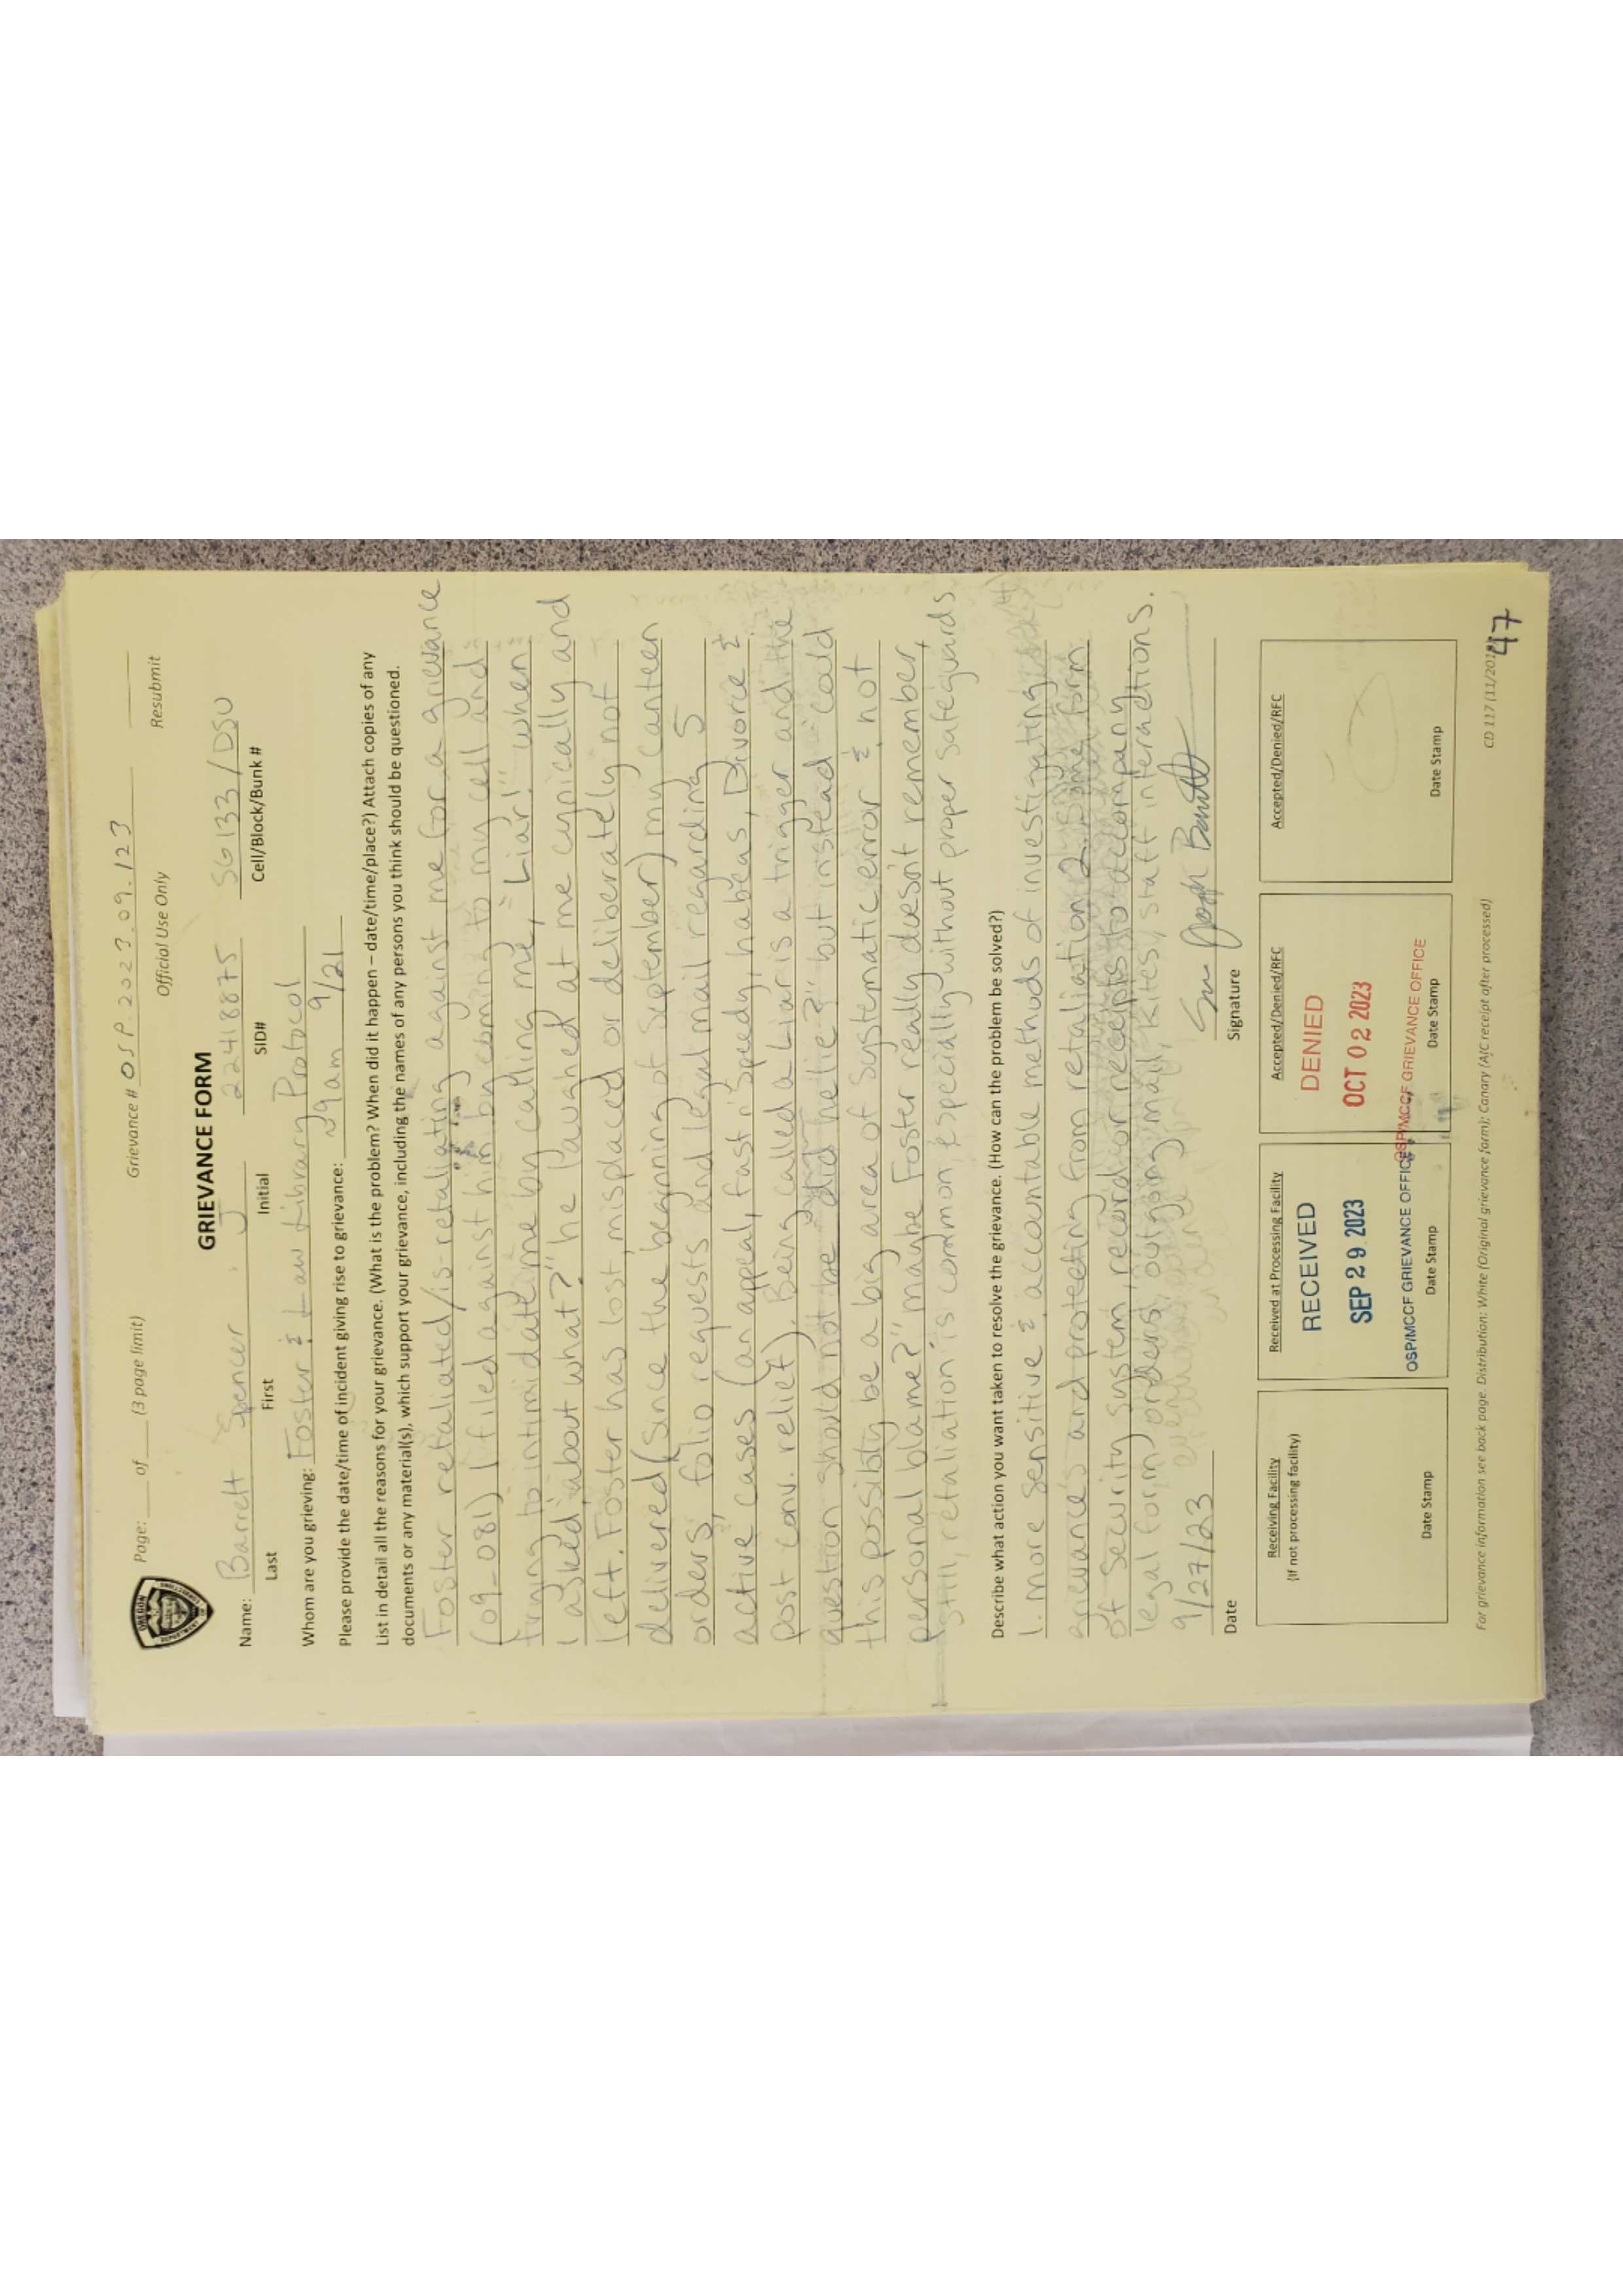 Page: ___ of ___ (3 page limit) Grievance # OSP.2023.09.123
Official Use Only Resubmit
GRIEVANCE FORM
Name: Barrett Spencer J 22418875 SG133/DSU
Last First Initial SID# Cell/Block/Bunk #
Whom are you grieving: Foster & Law Library Protocol
Please provide the date/time of incident giving rise to grievance: ~9am 9/21
List in detail all the reasons for your grievance. (What is the problem? When did it happen – date/time/place?) Attach copies of any
documents or any material(s), which support your grievance, including the names of any persons you think should be questioned.
Foster retaliated/is retaliating against me for a grievance
(09_081) I filed against him by coming to my cell and
trying to intimidate me by calling me, "Liar!" when
I asked, "about what?" he laughed at me cynically and
left. Foster has lost, misplaced or deliberately not
delivered (since the beginning of September) my canteen
orders, folio requests and legal mail regarding 5
active cases (an appeal, fast n' speedy, habeas, Divorce &
post conv. relief). Being called a Liar is a trigger and the
question should not be "did he lie?" but instead "could
this possibly be a big area of systematic error & not
personal blame?" "maybe Foster really doesn't remember,
still, retaliation is common, especially without proper safeguards
Describe what action you want taken to resolve the grievance. (How can the problem be solved?)
1. more sensitive & accountable methods of investigating
grievance's and protecting from retaliation 2. some form
of security system, record or receipts to accompany
legal form, orders, outgoing mail, kites, staff interactions.
9/27/23
Date Signature
Receiving Facility
(If not processing facility)
Date Stamp
Received at Processing Facility
RECEIVED
SEP 29 2023
OSP/MCCF GRIEVANCE OFFICE
Date Stamp
Accepted/Denied/RFC
DENIED
OCT 02 2023
OSP/MCCF GRIEVANCE OFFICE
Date Stamp
Accepted/Denied/RFC
Date Stamp
For grievance information see back page. Distribution: White (Original grievance form); Canary (AIC receipt after processed) CD 117 (11/201
47